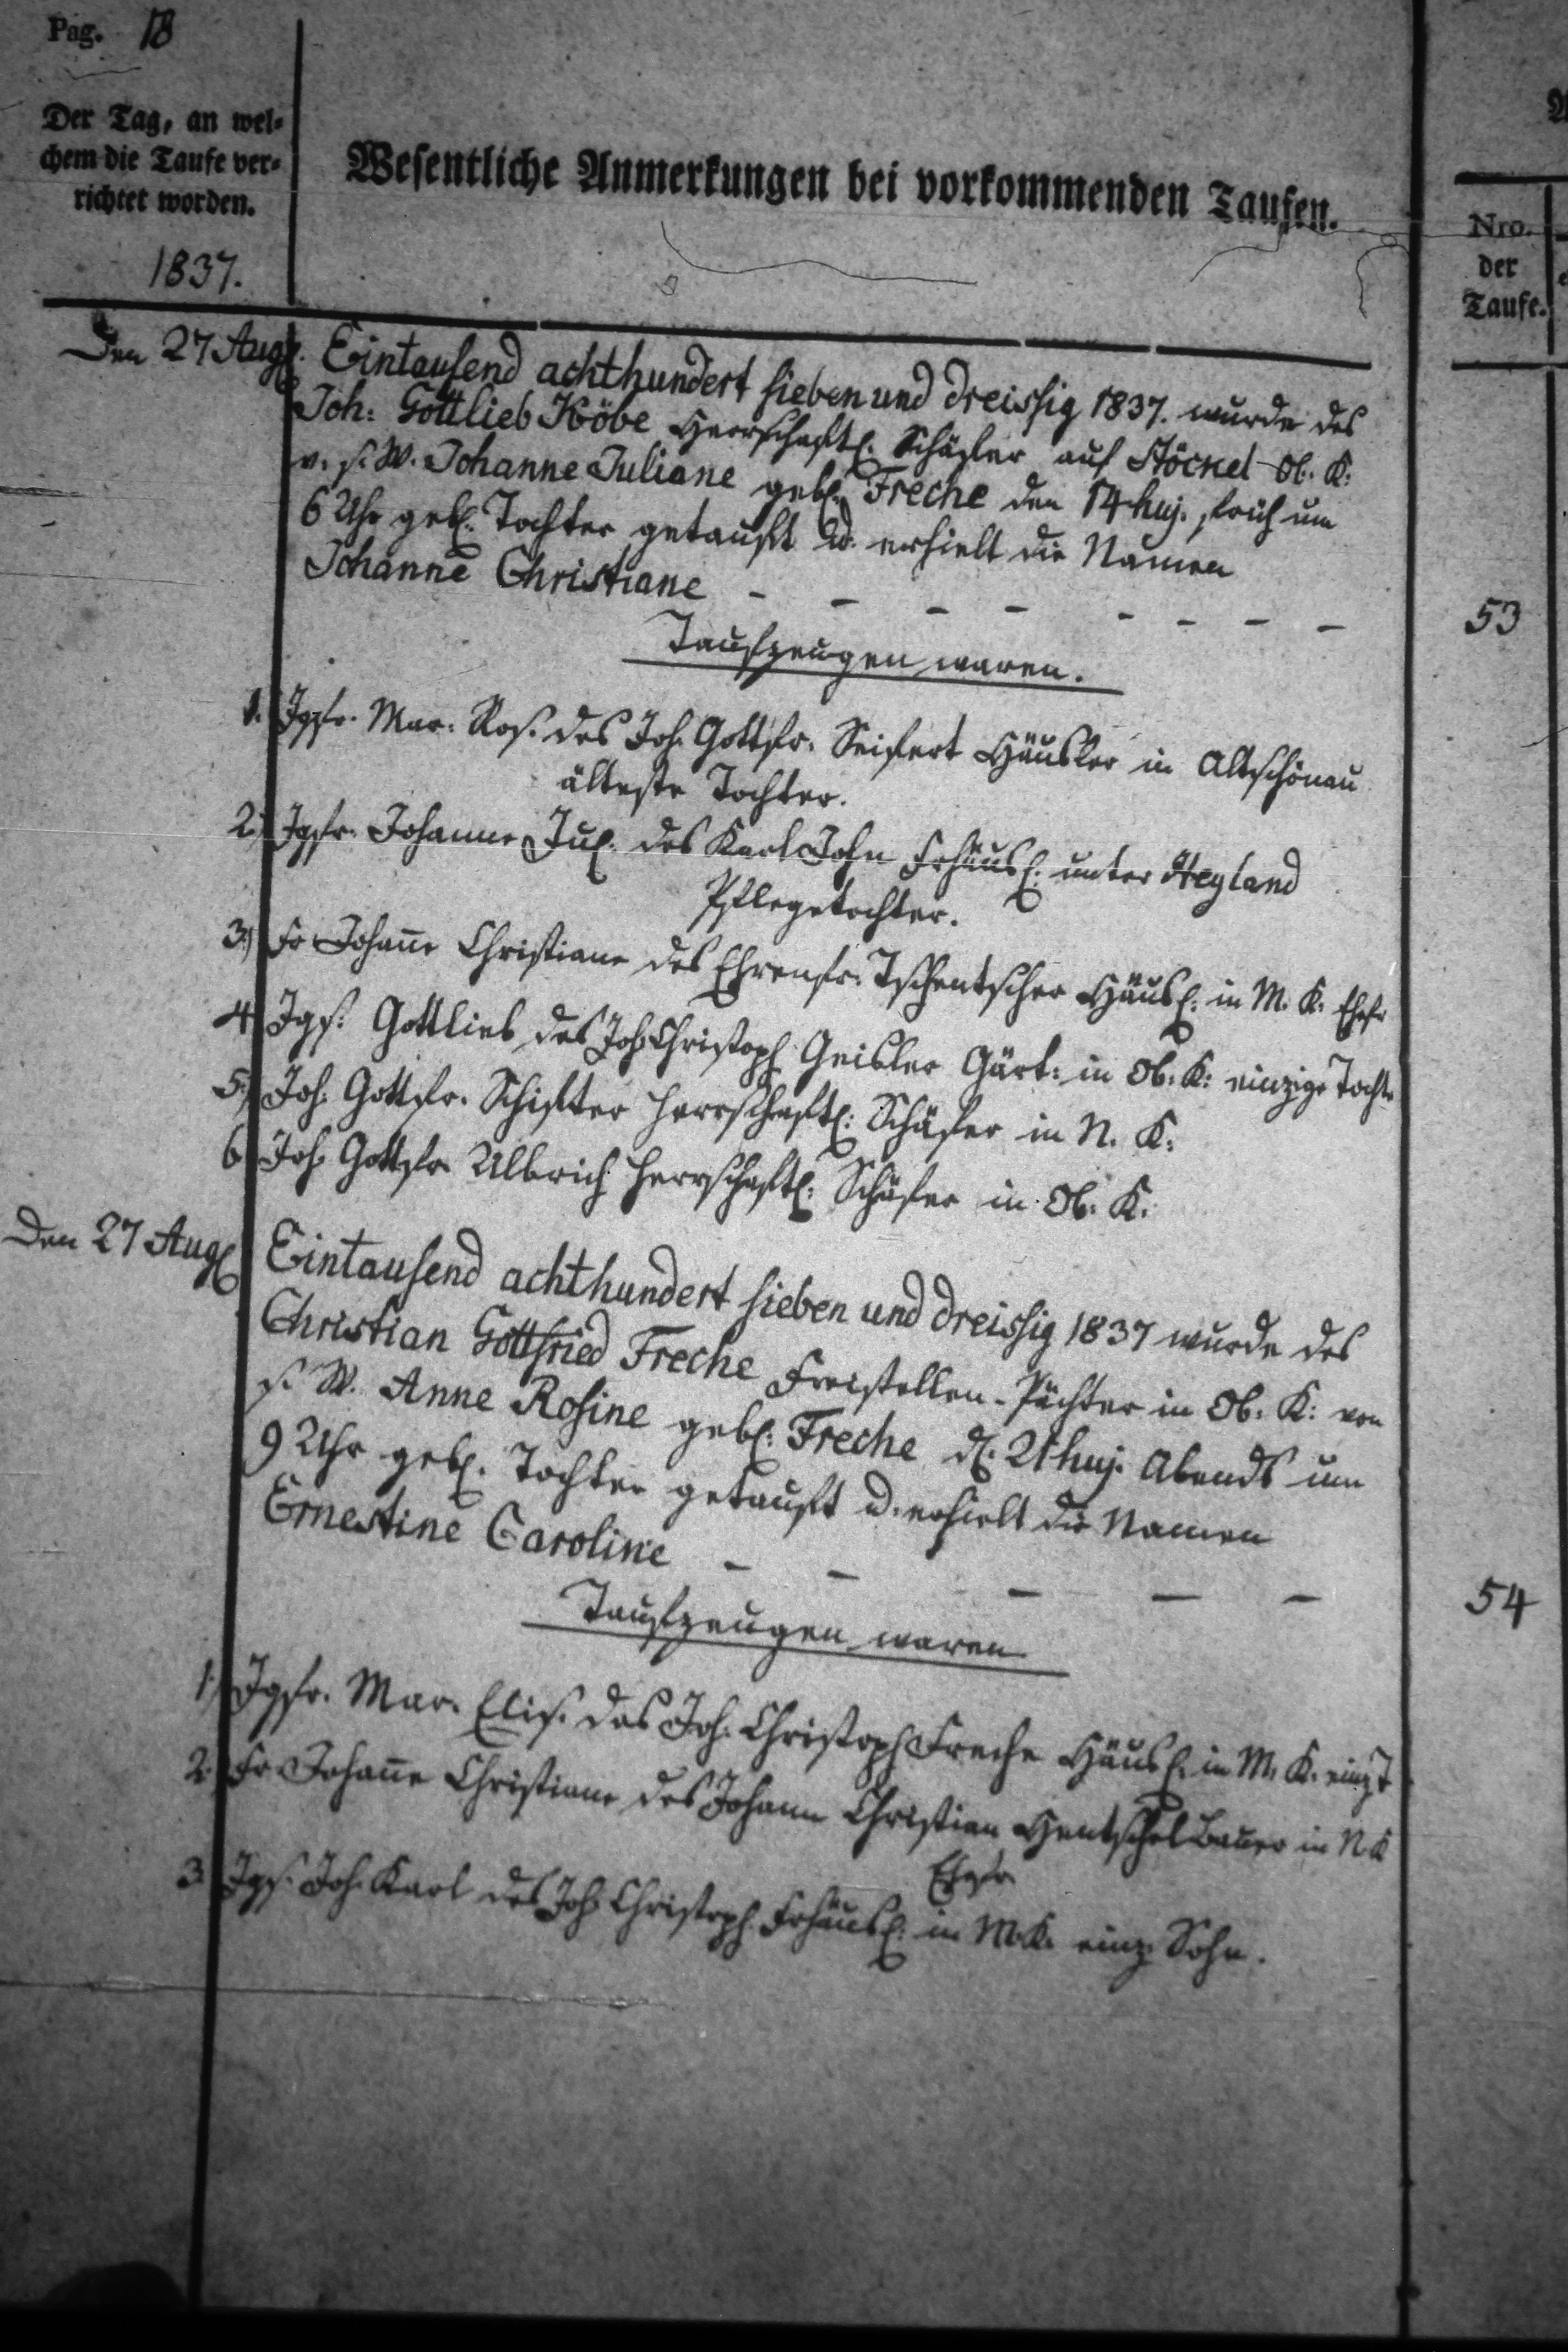 Pag. 18
Der Tag, an wel-
chem die Taufe ver-
richtet worden.
1837.
Wesentliche Anmerkungen bei vorkommenden Taufen.
Nro.
der
Taufe.
Den 27 Aug. Eintausend achthundert sieben und dreissig 1837. wurde des
Joh: Gottlieb Köbe Herrschaftl. auf Stöckel Ob. K:
v. s. W. Johanne Juliane geb. Freche den 14 huj. früh um
6 Uhr geb. Tochter getauft u. erhielt die Namen
Johanne Christiane - - - - - - - -
53
Taufzeugen waren.
1. Jgfr. Mar. Ros. des Joh. Gottfr. Seifert Häusler in Altschönau
älteste Tochter.
2.) Jgfr. Johanne Jul. des Karl John Frhäusl. unter Heyland
Pflegetochter.
3.) Fr Johañe Christiane des Ehrenfr. Tschentscher Häusl. in M. K. Ehefr
4 Jgs. Gottlieb des Joh. Christoph Geisler Gärt. in Ob. K: einzige Tocht.
5.) Joh. Gottfr. Schifter herrschaftl. Schäfer in N. K.
6 Joh. Gottfr. Ulbrich herrschaftl. Schäfer in Ob. K.
Den 27 Aug Eintausend achthundert sieben und dreissig 1837 wurde des
Christian Gottfried Freche Freistellen-Pächter in Ob. K: von
s. W. Anne Rosine geb. Freche d. 21 huj. Abends um
9 Uhr geb. Tochter getauft u. erhielt die Namen
Ernestine Caroline - - - - -
54
Taufzeugen waren
1.) Jgfr. Mar. Elis. des Joh. Christoph Freche Häusl. in M. K. einz T
2. Fr Johañe Christiane des Johann Christian Hentschel Bauer in N. K
Ehefr
3 Jgs. Joh. Karl des Joh. Christoph Frhäusl. in M. K. einz. Sohn.